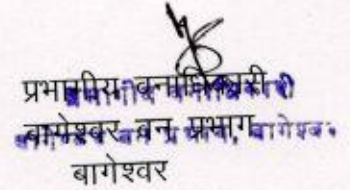 प्रभागीय वनाधिकारी
बागेश्वर वन प्रभाग, बागेश्वर
बागेश्वर